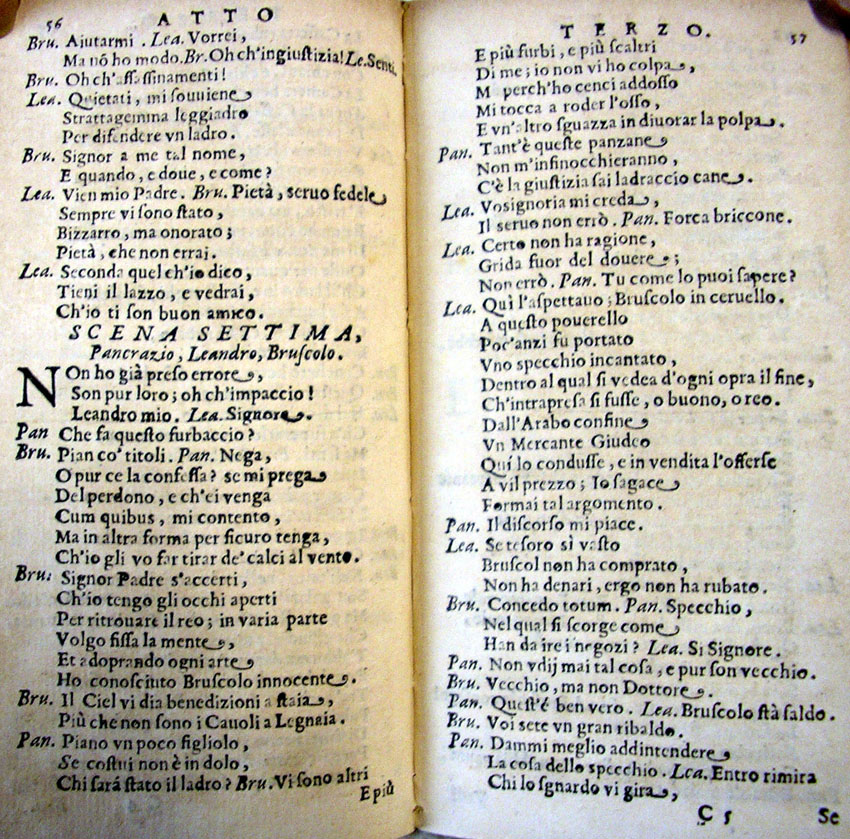 56 ATTO
Bru. Aiutarmi. Lea. Vorrei,
Ma nõ ho modo. Br. Oh ch'ingiuſtizia! Le. Senti.
Bru. Oh ch'aſſaſſinamenti!
Lea. Quietati, mi ſouuiene
Strattagemma leggiadro
Per difendere vn ladro.
Bru. Signor a me tal nome,
E quando, e doue, e come?
Lea. Vien mio Padre. Bru. Pietà, seruo fedele
Sempre vi ſono ſtato,
Bizzarro, ma onorato;
Pietà, che non errai.
Lea. Seconda quel ch'io dico,
Tieni il lazzo, e vedrai,
Ch'io ti ſon buon amico.
SCENA SETTIMA,
Pancrazio, Leandro, Bruſcolo.
NOn ho già preſo errore,
Son pur loro; oh ch'impaccio!
Leandro mio. Lea. Signore.
Pan Che fa queſto furbaccio?
Bru. Pian co' titoli. Pan. Nega,
O pur ce la confeſſa? se mi prega
Del perdono, e ch'ei venga
Cum quibus, mi contento,
Ma in altra forma per ſicuro tenga,
Ch'io gli vo far tirar de' calci al vento.
Bru: Signor Padre s'accerti,
Ch'io tengo gli occhi aperti
Per ritrouare il reo; in varia parte
Volgo fiſſa la mente,
Et adoprando ogni arte
Ho conoſciuto Bruſcolo innocente.
Bru. Il Ciel vi dia benedizioni a ſtaia,
Più che non ſono i Cauoli a Legnaia.
Pan. Piano vn poco figliolo,
Se coſtui non è in dolo,
Chi ſará ſtato il ladro? Bru. Vi ſono altri
E più
TERZO. 57
E più furbi, e più ſcaltri
Di me; io non vi ho colpa,
M perch'ho cenci addoſſo
Mi tocca a roder l'oſſo,
E vn'altro ſguazza in diuorar la polpa.
Pan. Tant'è queſte panzane
Non m'infinocchieranno,
C'è la giuſtizia ſai ladraccio cane.
Lea. Voſignoria mi creda,
Il ſeruo non errò. Pan. Forca briccone.
Lea. Certo non ha ragione,
Grida fuor del douere;
Non errò. Pan. Tu come lo puoi ſapere?
Lea. Quì l'aſpettauo; Bruſcolo in ceruello.
A queſto pouerello
Poc'anzi fu portato
Vno specchio incantato,
Dentro al qual ſi vedea d'ogni opra il fine,
Ch'intrapreſa ſi fuſſe, o buono, o reo.
Dall'Arabo confine
Vn Mercante Giudeo
Quí lo conduſſe, e in vendita l'offerſe
A vil prezzo; Io ſagace
Formai tal argomento.
Pan. Il diſcorſo mi piace.
Lea. Se teſoro sì vaſto
Bruſcol non ha comprato,
Non ha denari, ergo non ha rubato.
Bru. Concedo totum. Pan. Specchio,
Nel qual ſi ſcorge come
Han da ire i negozi? Lea. Sì Signore.
Pan. Non vdij mai tal coſa, e pur ſon vecchio.
Bru. Vecchio, ma non Dottore.
Pan. Queſt'é ben vero. Lea. Bruſcolo ſtà ſaldo.
Bru. Voi sete vn gran ribaldo.
Pan. Dammi meglio addintendere
La coſa dello ſpecchio. Lea. Entro rimira
Chi lo sgnardo vi gira,
C 5 Se